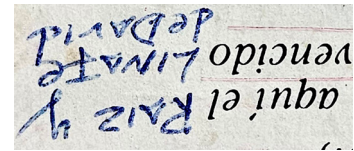 aquí el RAIZ y
vencido LINAJE
de DAVID